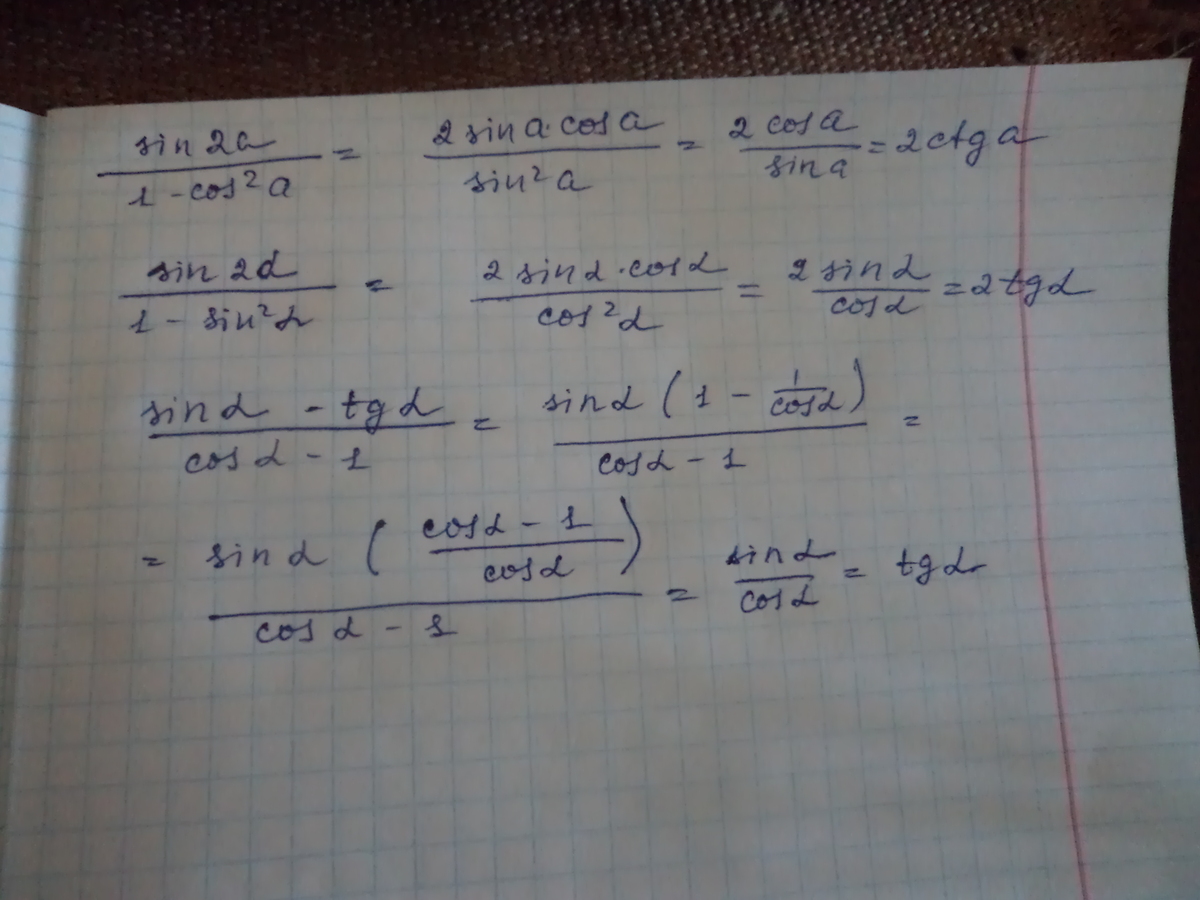 sin 2a / 1 - cos² a = 2 sin a · cos a / sin² a = 2 cos a / sin a = 2 ctg a
sin 2α / 1 - sin² α = 2 sin α · cos α / cos² α = 2 sin α / cos α = 2 tg α
sin α - tg α / cos α - 1 = sin α ( 1 - 1 / cos α ) / cos α - 1 =
= sin α ( cos α - 1 / cos α ) / cos α - 1 = sin α / cos α = tg α